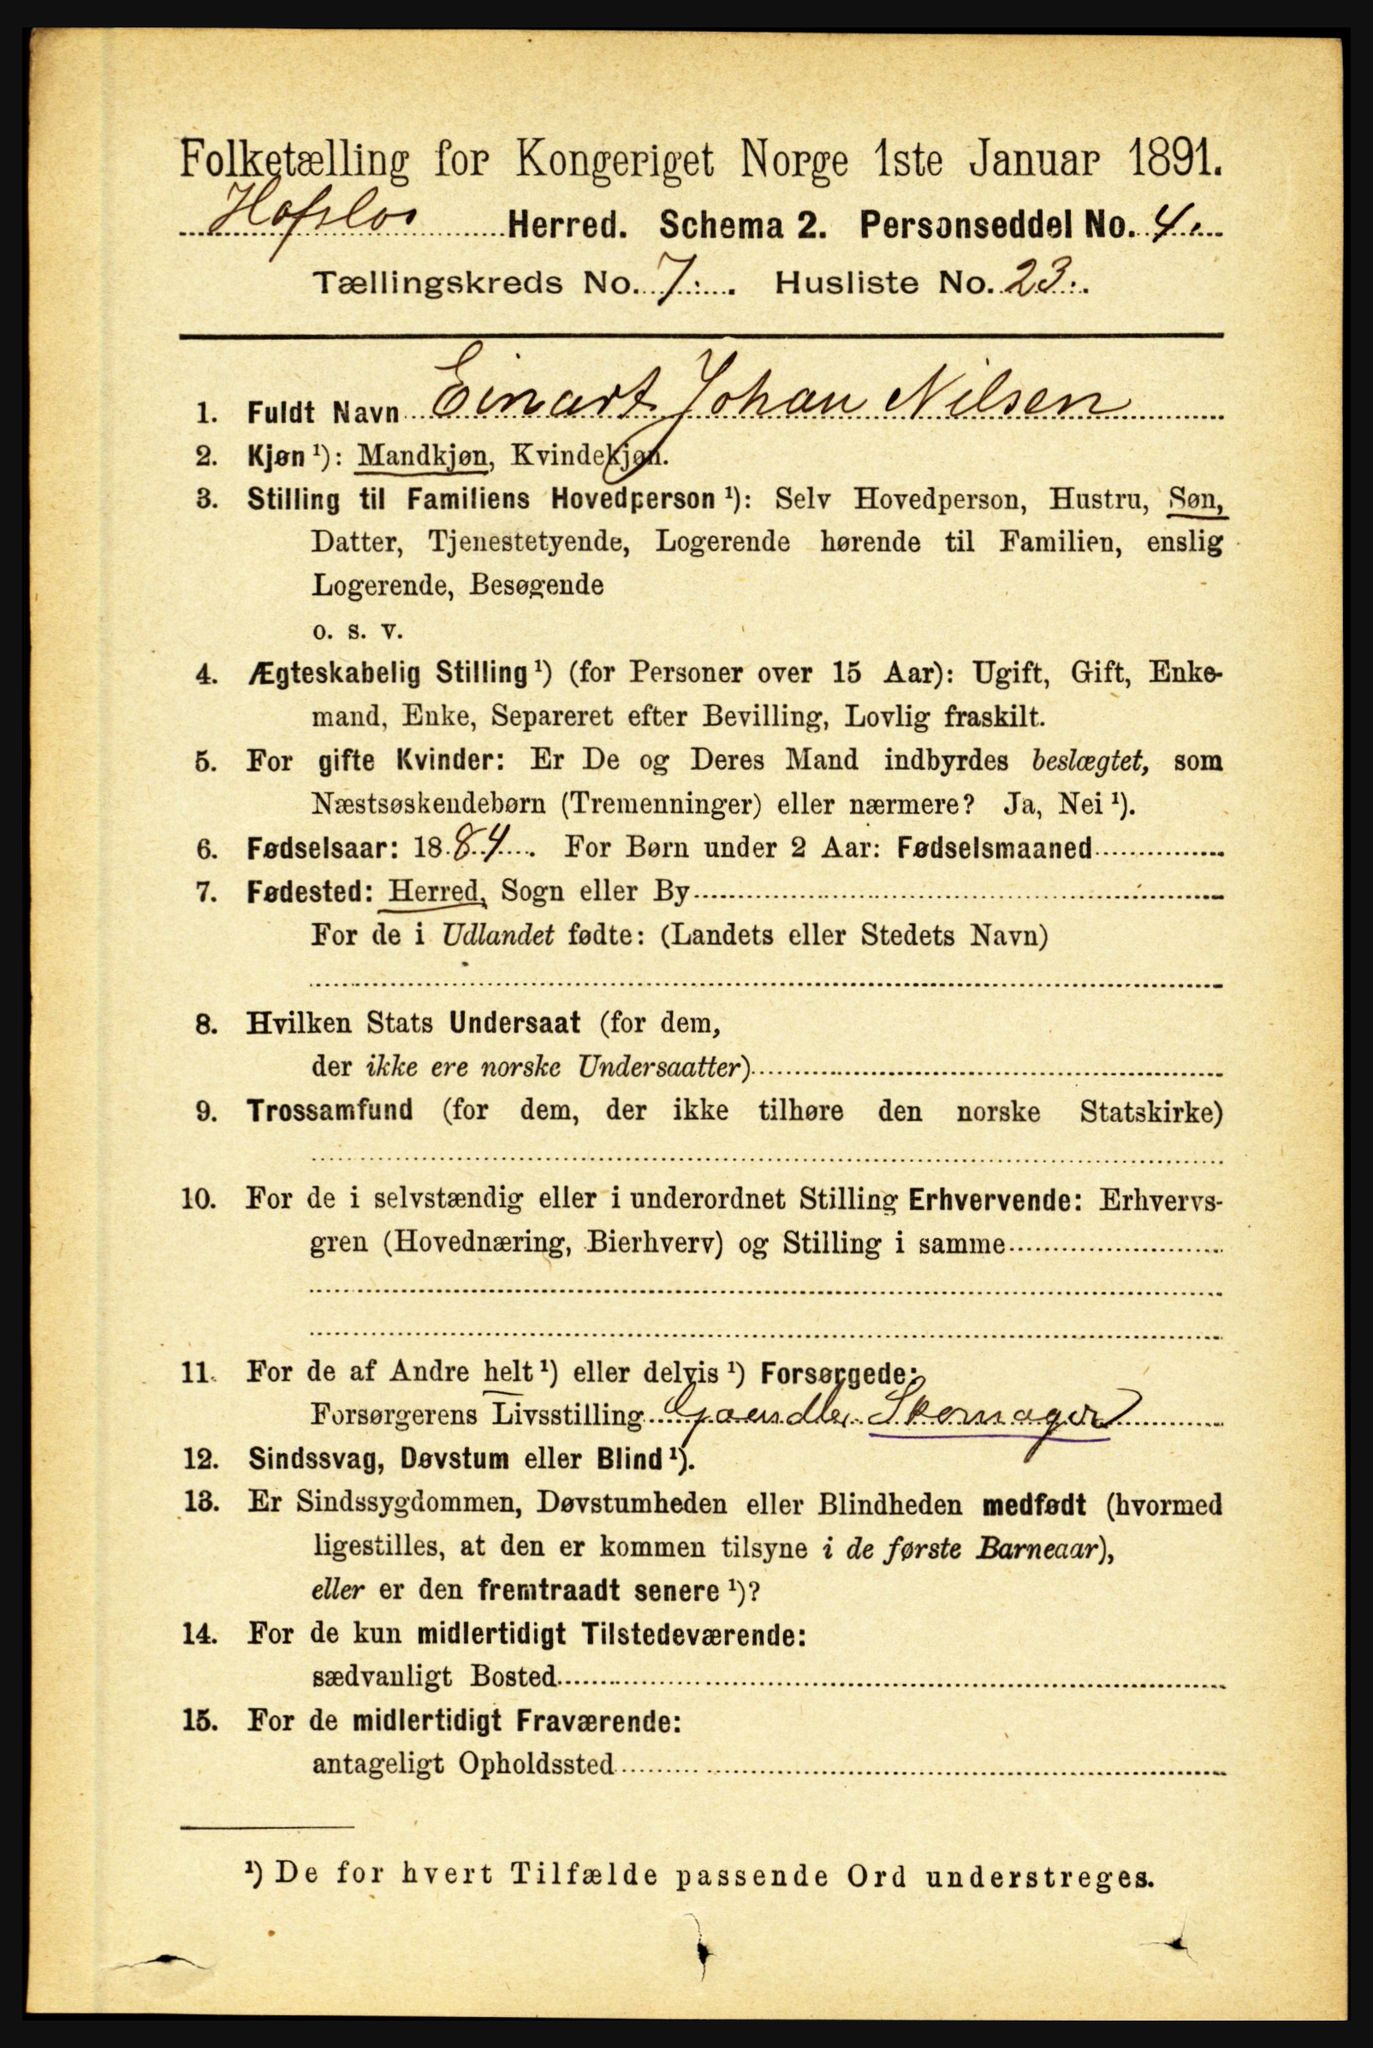 Folketælling for Kongeriget Norge 1ste Januar 1891.
Hafslo Herred. Schema 2. Personseddel No. 4.
Tællingskreds No. 7. Husliste No. 23.
1. Fuldt Navn Einart Johan Nilsen
2. Kjøn ¹): Mandkjøn, Kvindekjøn.
3. Stilling til Familiens Hovedperson ¹): Selv Hovedperson, Hustru, Søn,
Datter, Tjenestetyende, Logerende hørende til Familien, enslig
Logerende, Besøgende
o. s. v.
4. Ægteskabelig Stilling ¹) (for Personer over 15 Aar): Ugift, Gift, Enke-
mand, Enke, Separeret efter Bevilling, Lovlig fraskilt.
5. For gifte Kvinder: Er De og Deres Mand indbyrdes beslægtet, som
Næstsøskendebørn (Tremenninger) eller nærmere? Ja, Nei ¹).
6. Fødselsaar: 1884. For Børn under 2 Aar: Fødselsmaaned
7. Fødested: Herred, Sogn eller By
For de i Udlandet fødte: (Landets eller Stedets Navn)
8. Hvilken Stats Undersaat (for dem,
der ikke ere norske Undersaatter)
9. Trossamfund (for dem, der ikke tilhøre den norske Statskirke)
10. For de i selvstændig eller i underordnet Stilling Erhvervende: Erhvervs-
gren (Hovednæring, Bierhverv) og Stilling i samme
11. For de af Andre helt ¹) eller delvis ¹) Forsørgede:
Forsørgerens Livsstilling Skomager
12. Sindssvag, Døvstum eller Blind ¹).
13. Er Sindssygdommen, Døvstumheden eller Blindheden medfødt (hvormed
ligestilles, at den er kommen tilsyne i de første Barneaar),
eller er den fremtraadt senere ¹)?
14. For de kun midlertidigt Tilstedeværende:
sædvanligt Bosted
15. For de midlertidigt Fraværende:
antageligt Opholdssted
¹) De for hvert Tilfælde passende Ord understreges.